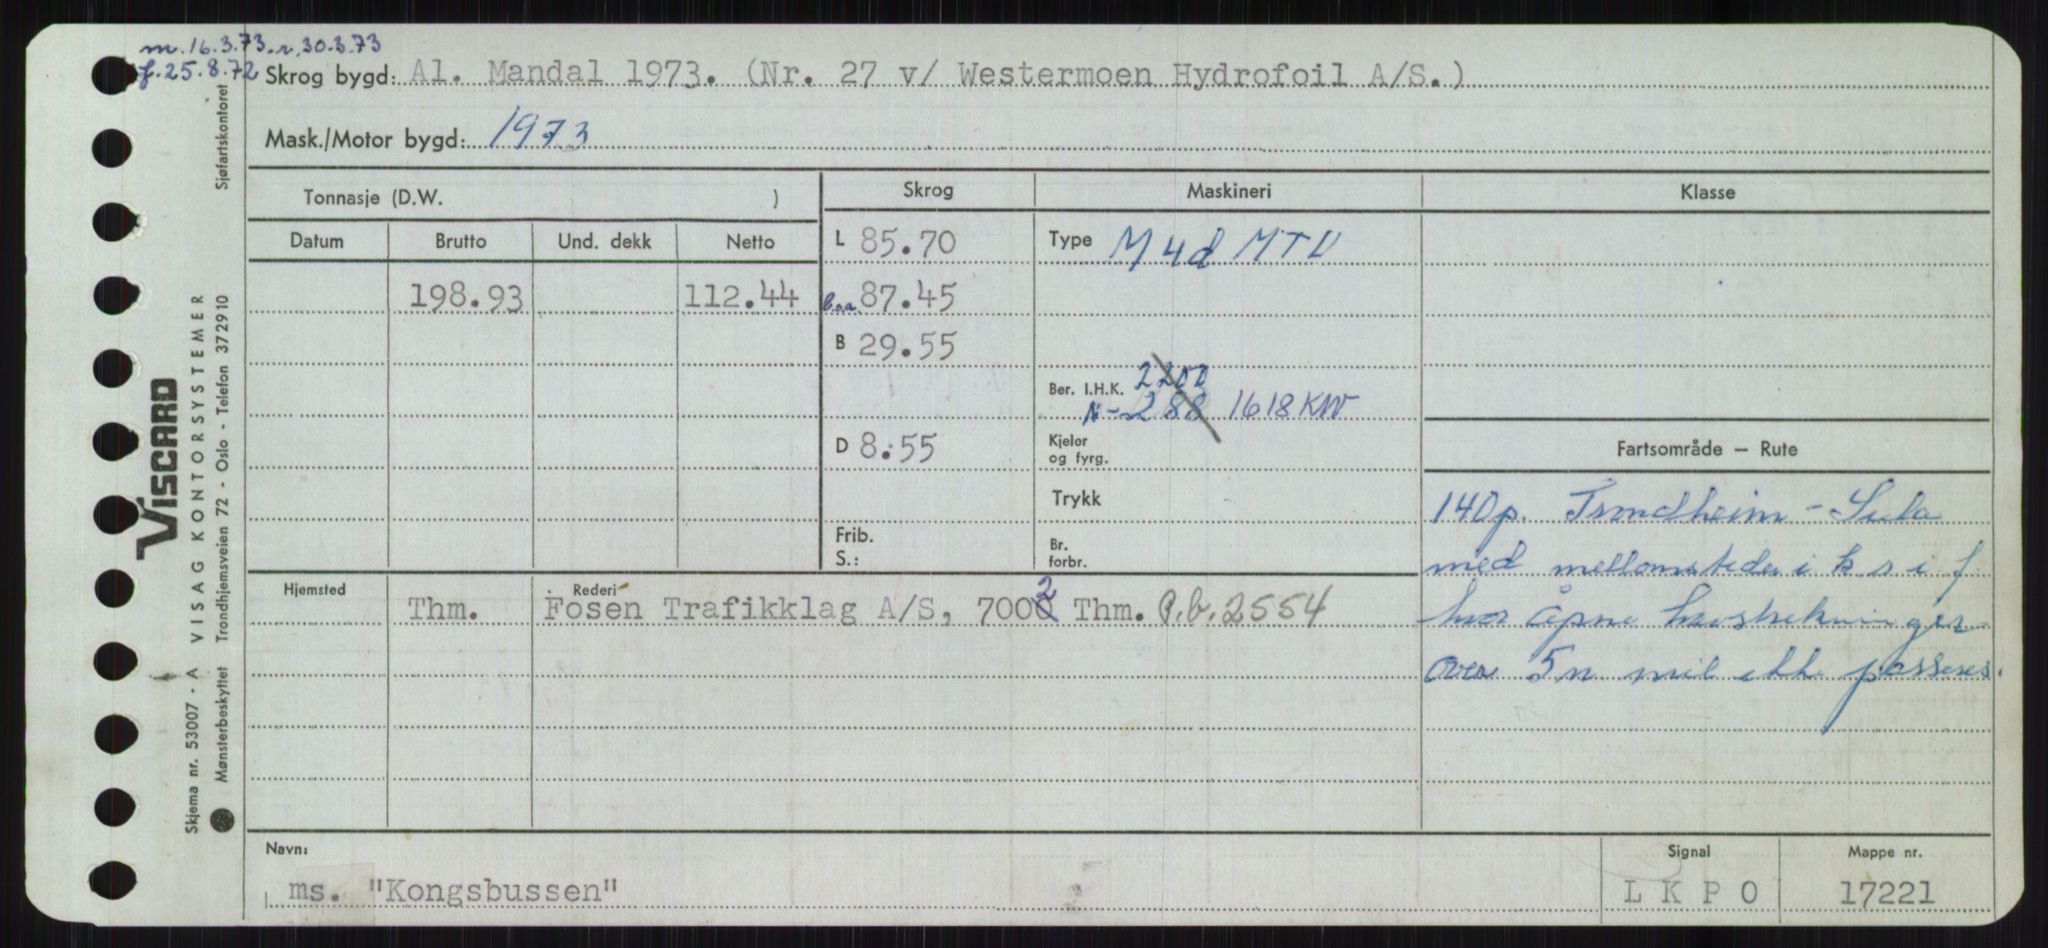 m. 16.3.73. r. 30.3.73
f. 25.8.72 Skrog bygd: Al. Mandal 1973. (Nr. 27 v/ Westermoen Hydrofoil A/S.)
Mask./Motor bygd: 1973
Tonnasje (D.W. ) Skrog Maskineri Klasse
Datum Brutto Und. dekk Netto L 85.70 Type M 4d MTU
198.93 112.44 l.o.a. 87.45
B 29.55
Ber. I.H.K. 2200
N-288 1618 KW
D 8.55 Kjeler og fyrg. Fartsområde — Rute
Trykk
Frib.
S.: Br. forbr.
140p. Trondheim - Sula
med mellomsteder i k s i f
hvor åpne havstrekninger
over 5 n mil ikk passeres.
Hjemsted Rederi
Thm. Fosen Trafikklag A/S, 7002 Thm. P.b. 2554
Navn: Signal Mappe nr.
ms. "Kongsbussen" L K P O 17221
VISCARD
Skjema nr. 53007 - A VISAG KONTORSYSTEMER
Mønsterbeskyttet Trondhjemsveien 72 - Oslo - Telefon 372910 Sjøfartskontoret